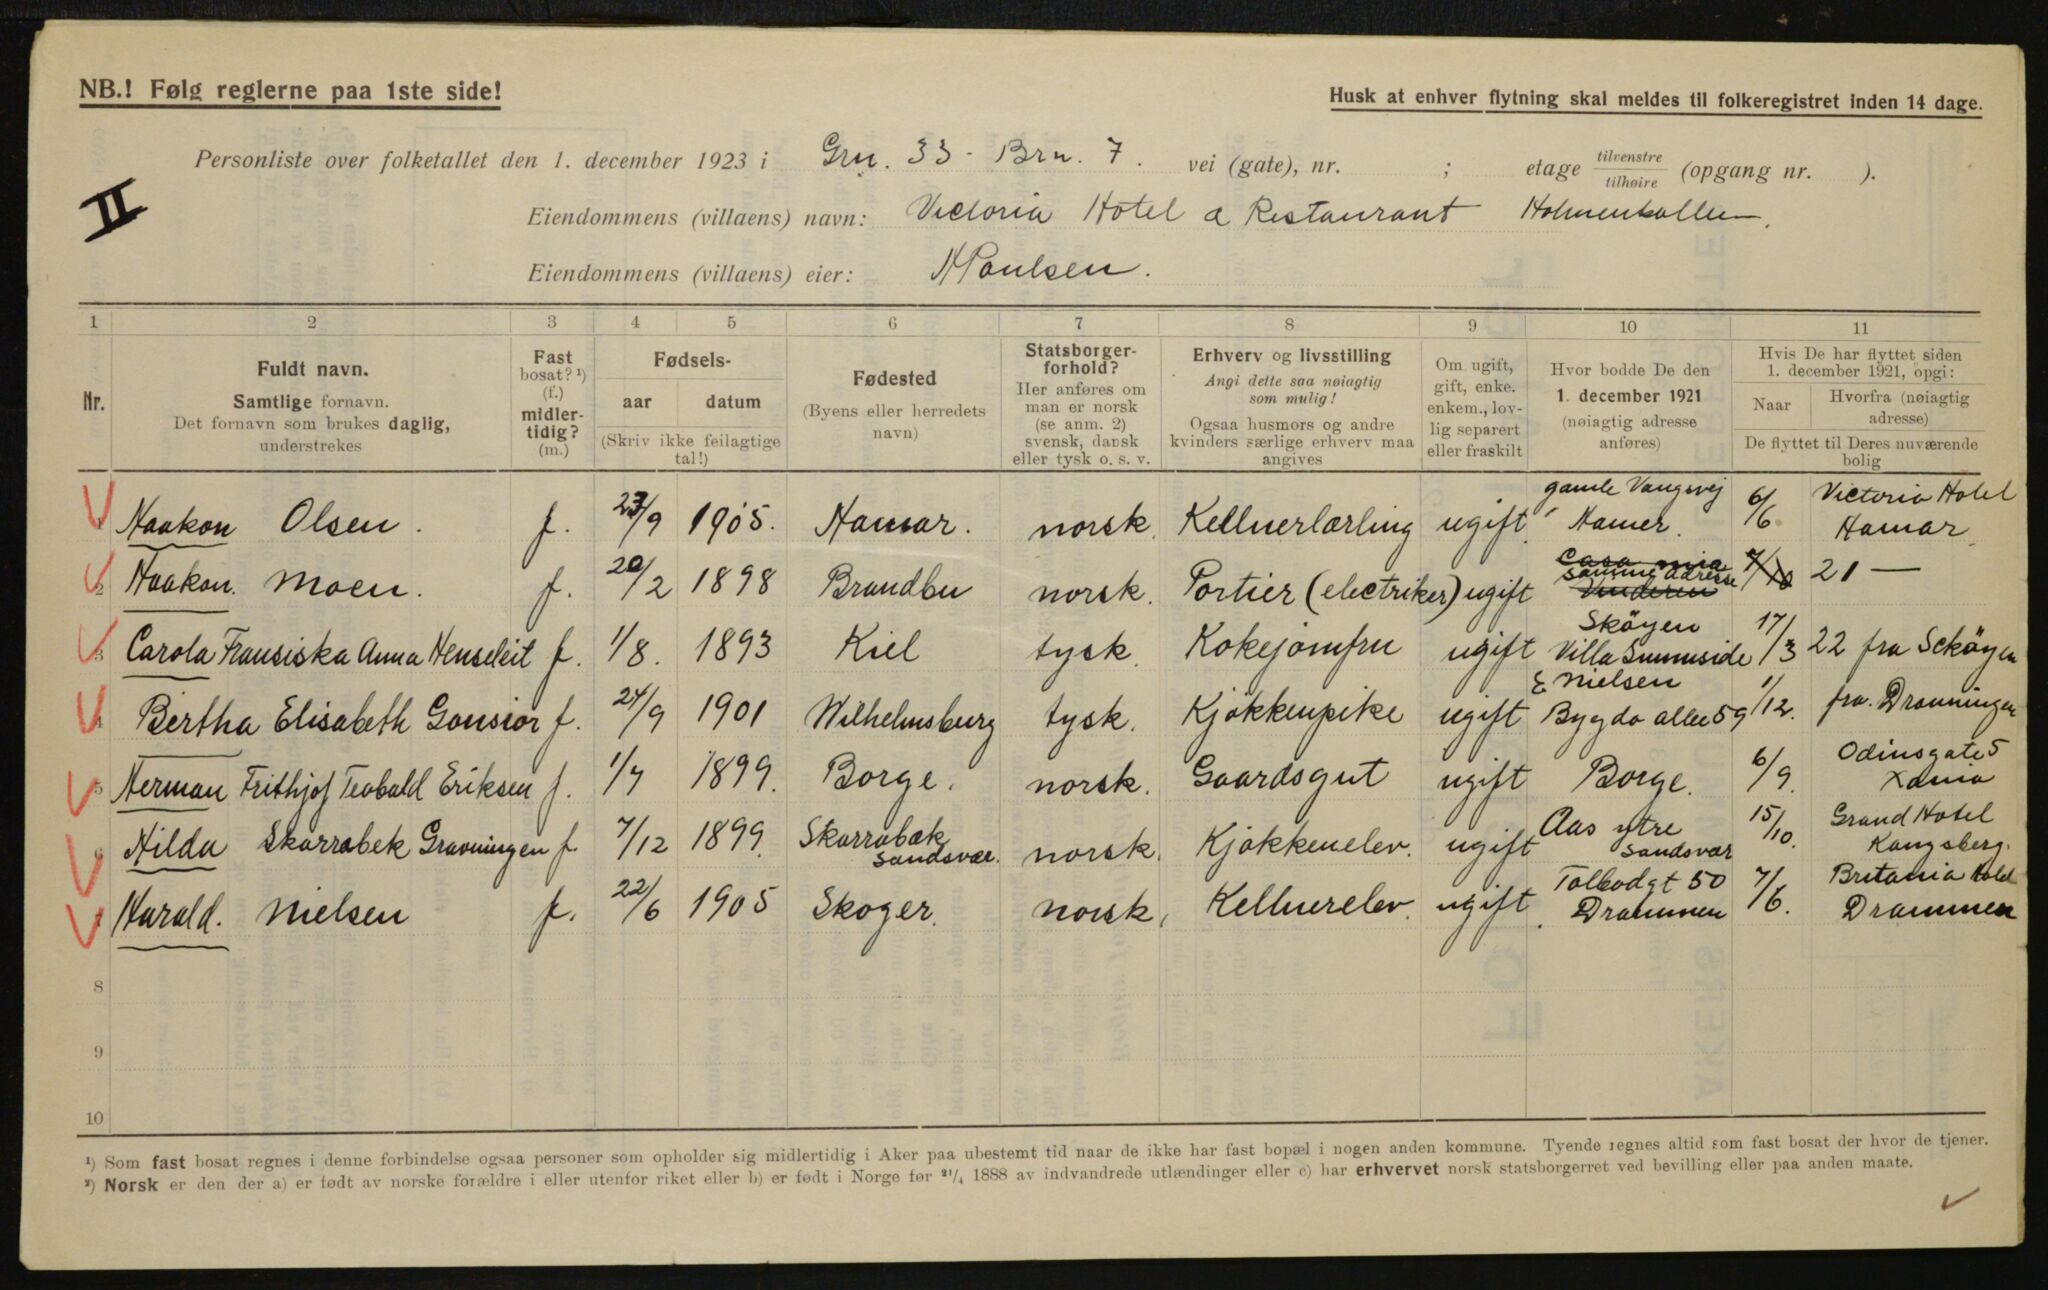 NB.! Følg reglerne paa 1ste side!
Husk at enhver flytning skal meldes til folkeregistret inden 14 dage.
Personliste over folketallet den 1. december 1923 i Grn. 33 - Brn. 7. vei (gate), nr. ; etage tilvenstre/tilhøire (opgang nr. ).
II
Eiendommens (villaens) navn: Victoria Hotel & Restaurant Holmenkollen.
Eiendommens (villaens) eier: N Poulsen.
1 2 3 4 5 6 7 8 9 10 11
Nr.
Fuldt navn.
Samtlige fornavn.
Det fornavn som brukes daglig,
understrekes
Fast
bosat? ¹)
(f.)
midler-
tidig?
(m.)
Fødsels-
aar datum
(Skriv ikke feilagtige
tal!)
Fødested
(Byens eller herredets
navn)
Statsborger-
forhold?
Her anføres om
man er norsk
(se anm. 2)
svensk, dansk
eller tysk o. s. v.
Erhverv og livsstilling
Angi dette saa nøiagtig
som mulig!
Ogsaa husmors og andre
kvinders særlige erhverv maa
angives
Om ugift,
gift, enke.
enkem., lov-
lig separert
eller fraskilt
Hvor bodde De den
1. december 1921
(nøiagtig adresse
anføres)
Hvis De har flyttet siden
1. december 1921, opgi:
Naar
Hvorfra (nøiagtig
adresse)
De flyttet til Deres nuværende
bolig
1 Haakon Olsen. f. 23/9 1905. Hamar. norsk. Kellnerlærling ugift gamle Vangsvej Hamer. 6/6 Victoria Hotel Hamar.
2 Haakon. Moen. f. 20/2 1898 Brandbu norsk. Portier (electriker) ugift Casa mia samme adresse Vinderen 7/10 21 —
3 Carola Fransiska Anna Henseleit f. 1/8. 1893 Kiel tysk. Kokejomfru ugift Skøyen Villa Sunnside 17/3 22 fra Scköyen
4 Bertha Elisabeth Gonsior f. 24/9 1901 Wilhelmsburg tysk. Kjøkkenpike ugift E Nielsen Bygdo allee 59 1/12. fra. Dronningen
5 Herman Frithjof Teobald Eriksen f. 1/7 1899. Borge. norsk. Gaardsgut ugift Borge. 6/9. Odinsgate 5 Xania
6 Hilda Skarrabek Gravningen f 7/12 1899. Skarrabæk Sandsvær. norsk. Kjøkkenelev. ugift Aas ytre Sandsvær 15/10. Grand Hotel Kongsberg.
7 Harald. Nielsen f. 22/6 1905 Skoger. norsk. Kellnerelev. ugift. Tolbodgt 50 Drammen 7/6. Britania Hotel Drammen
8
9
10
¹) Som fast bosat regnes i denne forbindelse ogsaa personer som opholder sig midlertidig i Aker paa ubestemt tid naar de ikke har fast bopæl i nogen anden kommune. Tyende regnes altid som fast bosat der hvor de tjener.
²) Norsk er den der a) er født av norske forældre i eller utenfor riket eller b) er født i Norge før ²¹/₄ 1888 av indvandrede utlændinger eller c) har erhvervet norsk statsborgerret ved bevilling eller paa anden maate.